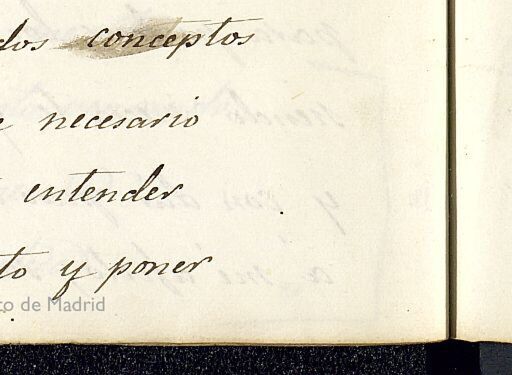 dos conceptos
e necesario
entender
to y poner
to de Madrid